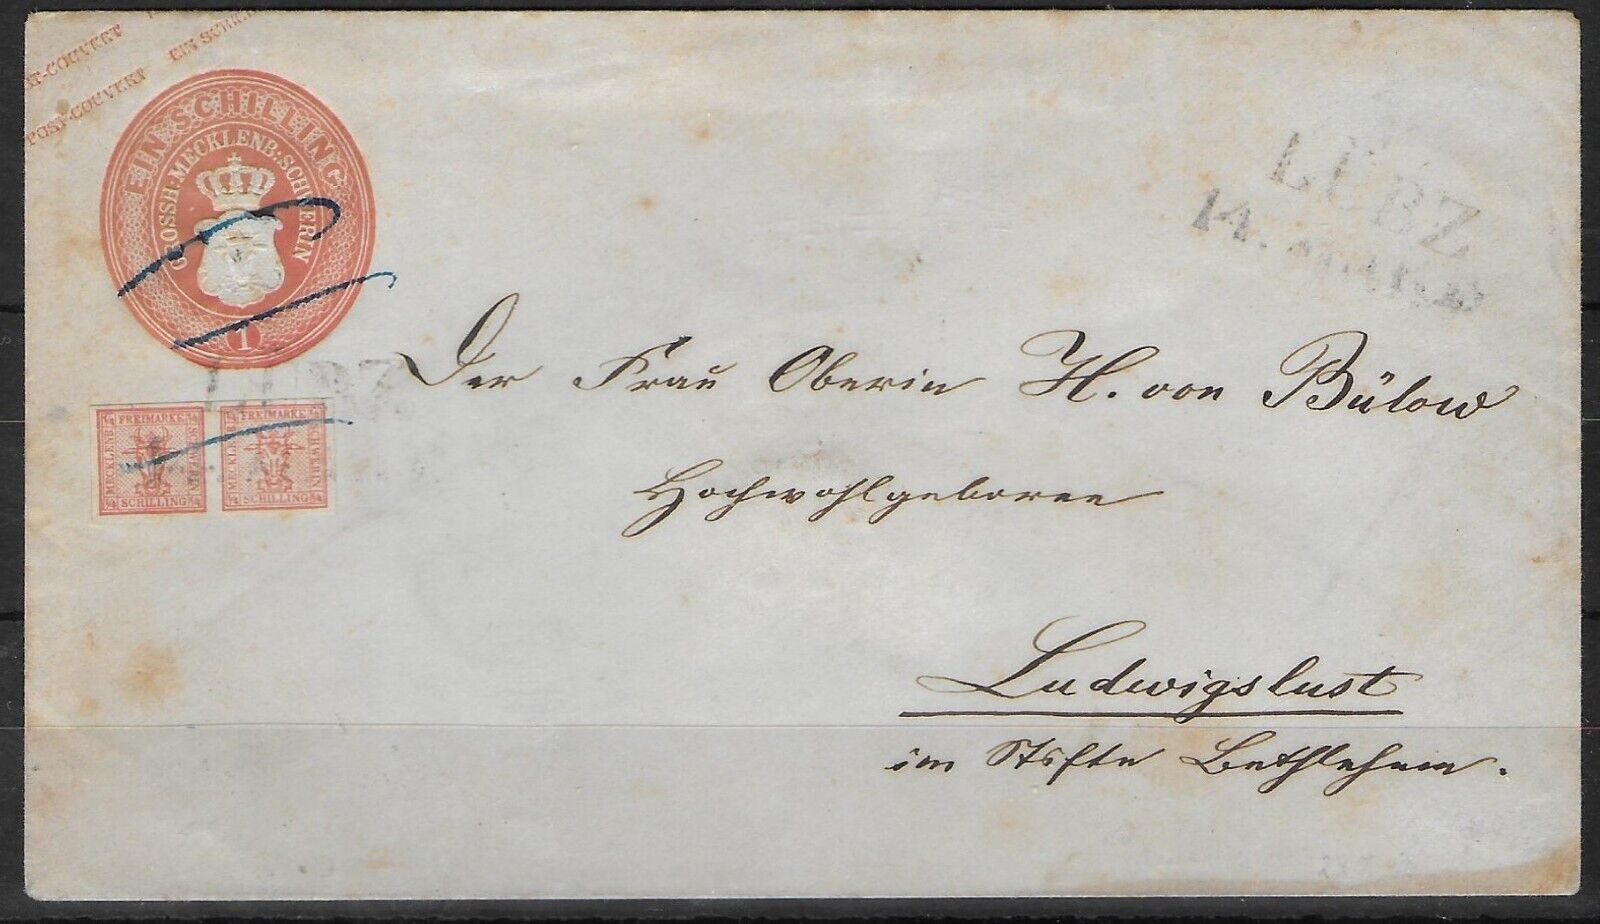 POST-COUVERT EIN
POST-COUVERT
EIN SCHILLING
GROSSH. MECKLENB: SCHWERIN
1
LÜBZ
14.
LÜBZ
1/4 FREIMARKE 1/4
MECKLENB.
SCHWERIN
1/4 SCHILLING 1/4
1/4 FREIMARKE 1/4
MECKLENB.
SCHWERIN
1/4 SCHILLING 1/4
Der Frau Oberin H. von Bülow
Hochwohlgeboren
Ludwigslust
im Stifte Bethlehem.